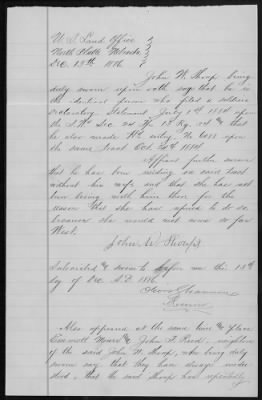 U. S. Land Office
North Platte Nebraska
Dec. 13th 1886
John W. Thorp being
duly sworn upon oath say that he is
the identical person who filed a soldiers
Declaratory Statement July 1st 1884 upon
the Sec. 24 Tp. 13 Rg. that
he also made Hd. entry No upon
the same tract Oct. 20th 1884
Affiant further swears
that he has been residing on said tract
without his wife and that she has not
been living with him there for the
reason that she has refused to do so
because she would not come so far
West.
John W. Thorp
Subscribed & sworn to before me this 13th
day of Dec. A.D. 1886

Receiver
Also appeared at the same time & place
Munro & John F. Reid, neighbors
of the said John W. Thorp, who being duly
sworn say that they have always under
stood, that he said Thorp has repeatedly